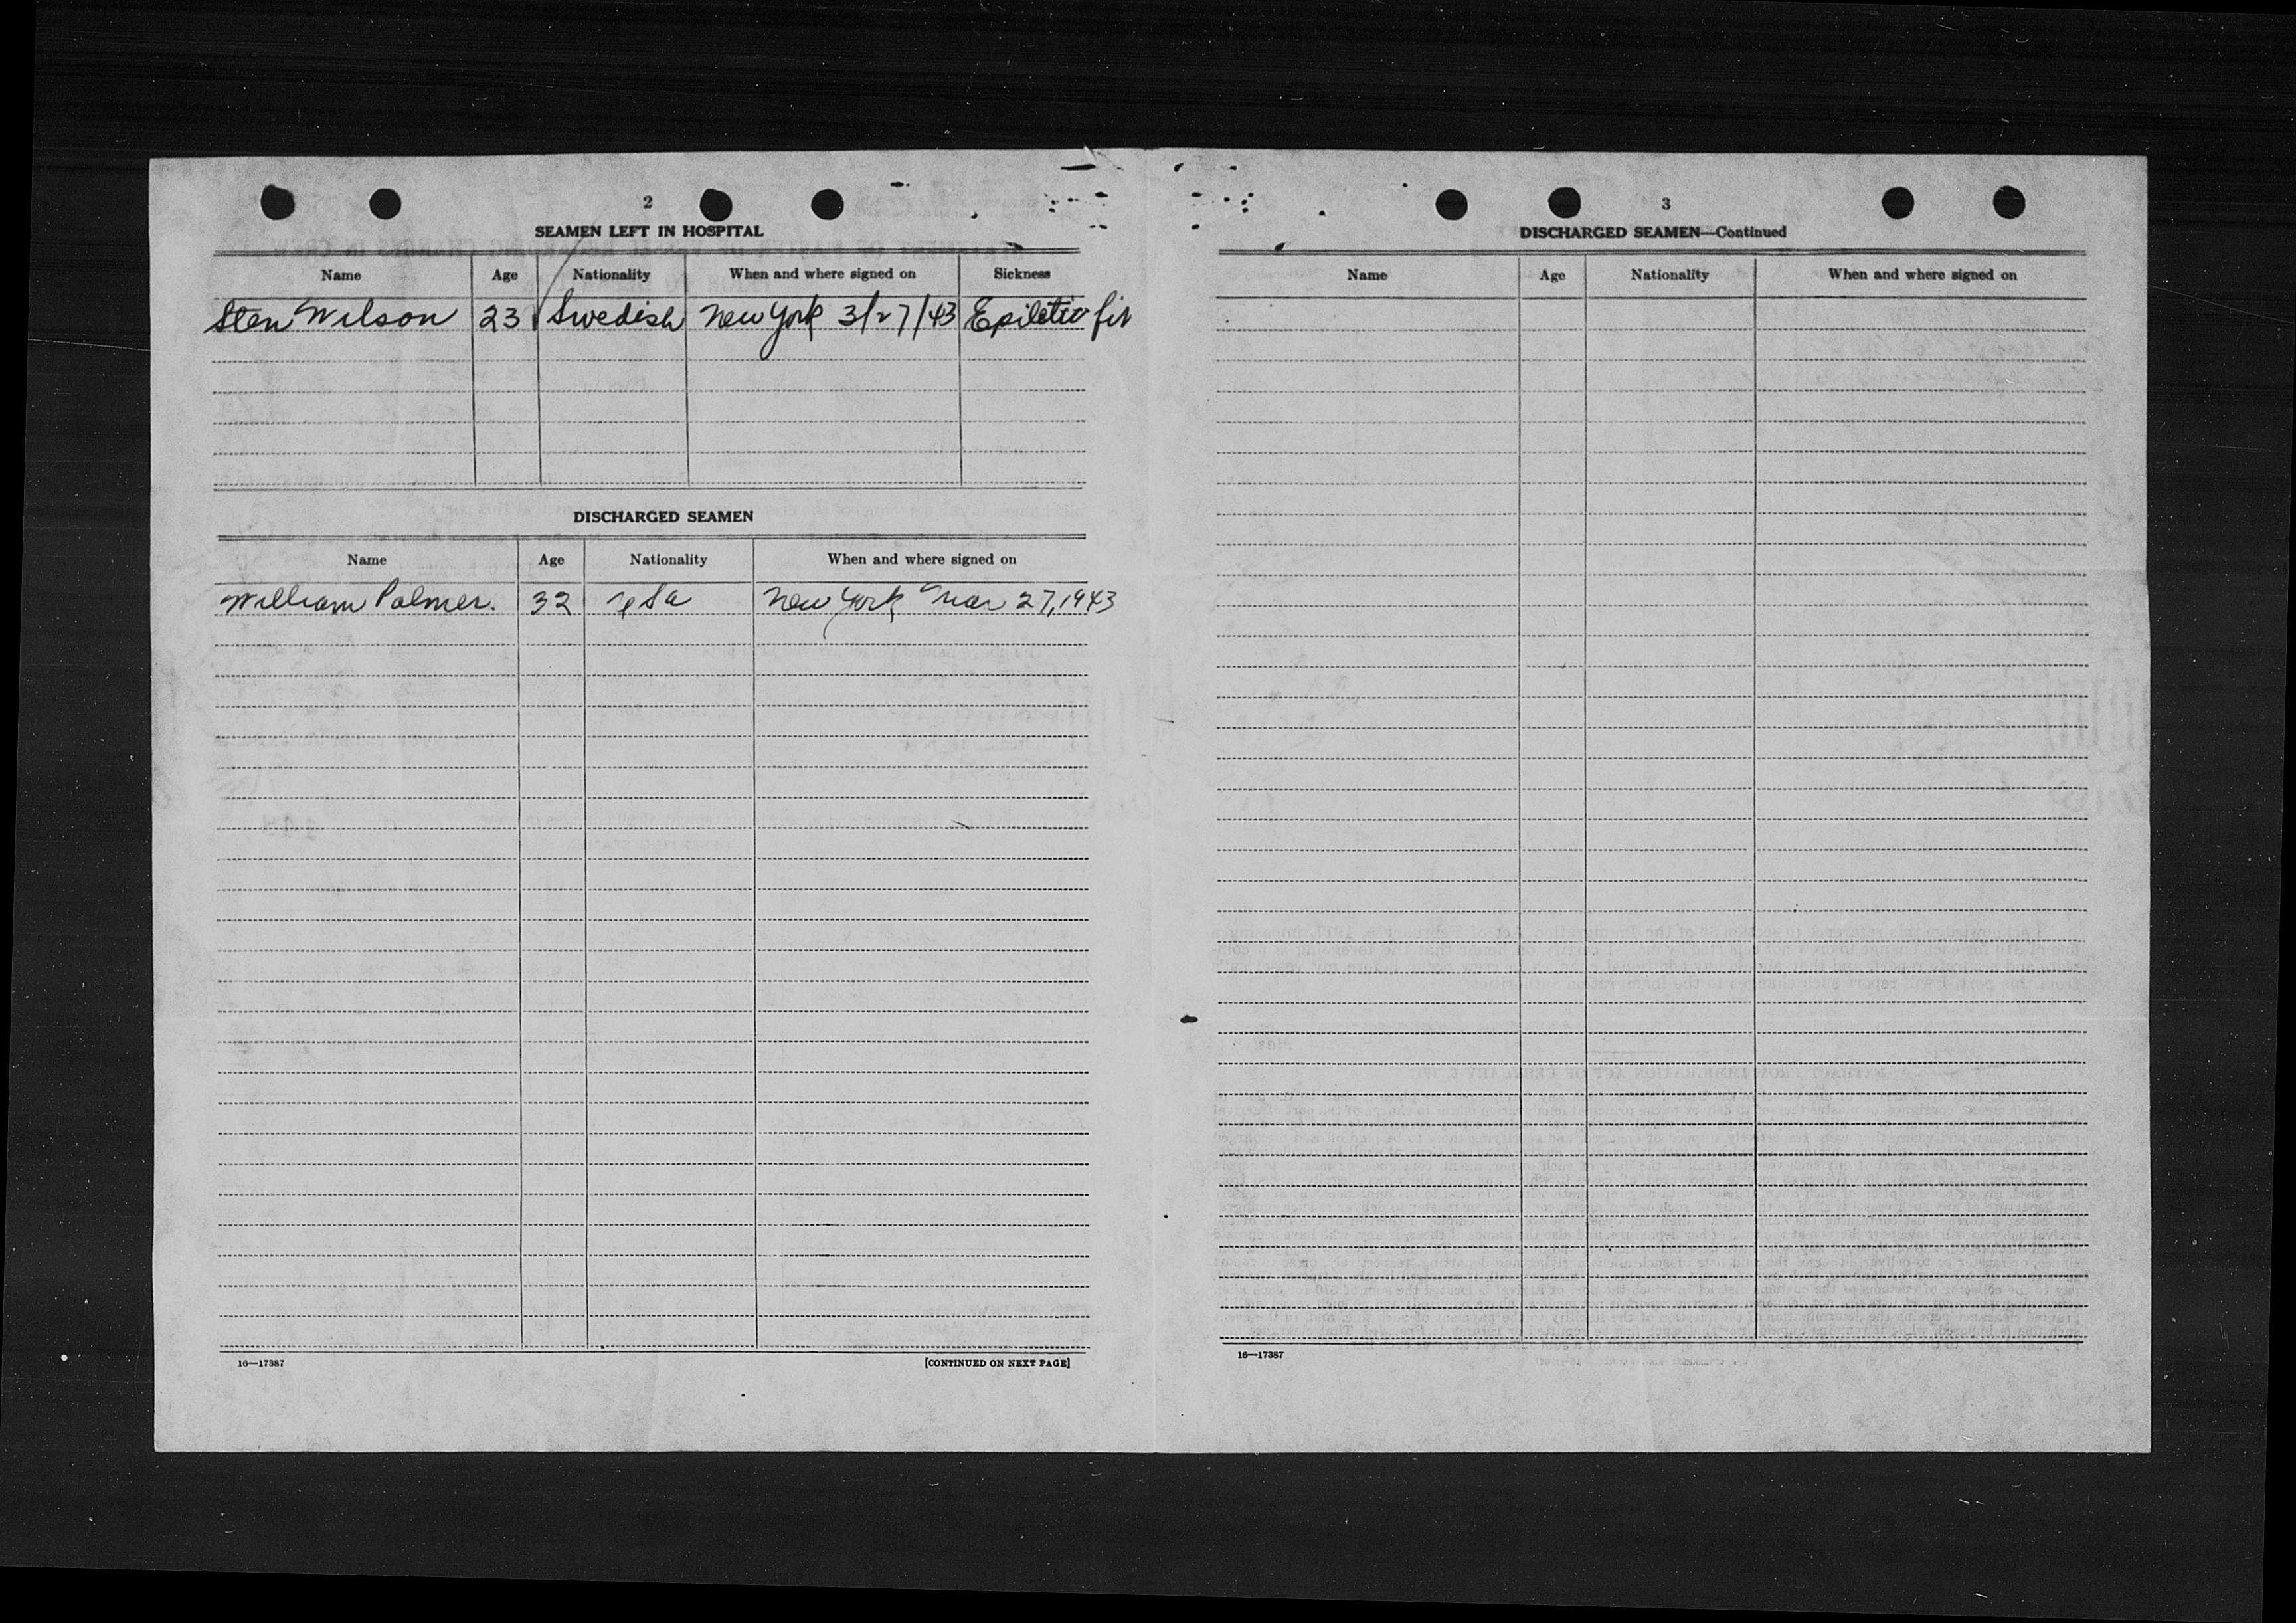 2
SEAMEN LEFT IN HOSPITAL
Name Age Nationality When and where signed on Sickness
Sten Wilson 23 Swedish New York 3/27/43 Epiletic fit
DISCHARGED SEAMEN
Name Age Nationality When and where signed on
William Palmer. 32 USA New York Mar 27, 1943
16—17387 [CONTINUED ON NEXT PAGE]
3
DISCHARGED SEAMEN—Continued
Name Age Nationality When and where signed on
16—17387